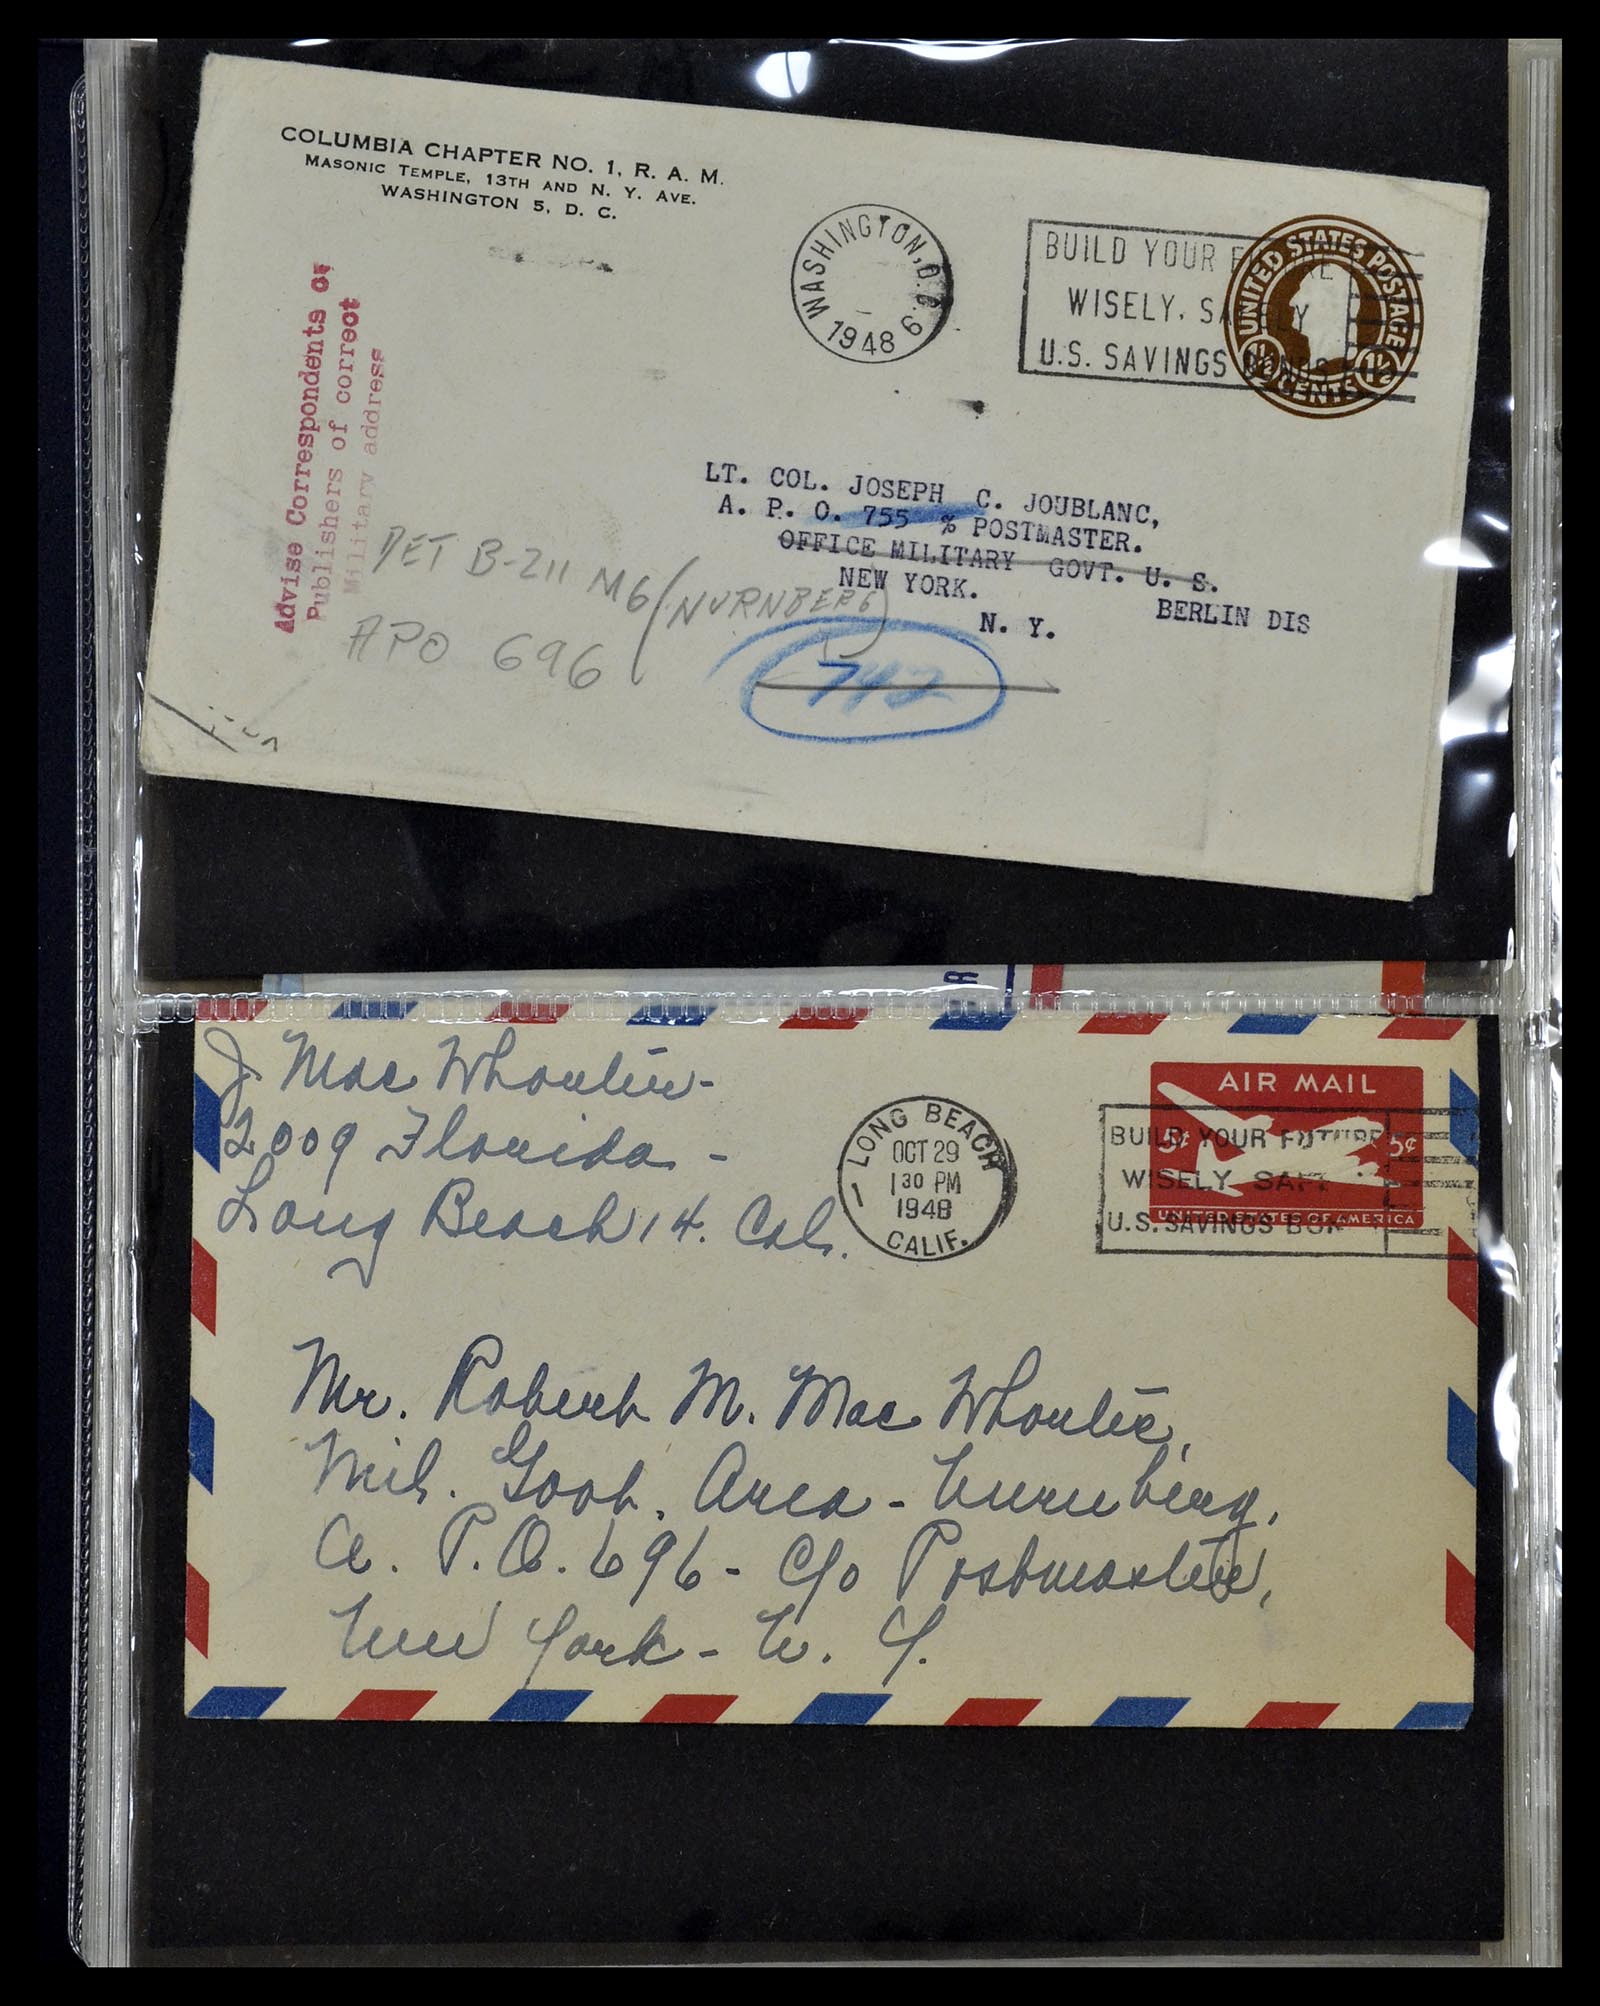 COLUMBIA CHAPTER NO. 1, R. A. M.
MASONIC TEMPLE, 13TH AND N. Y. AVE.
WASHINGTON 5, D. C.
WASHINGTON, D.C.
1948
BUILD YOUR
WISELY, SAFELY
U.S. SAVINGS BONDS
UNITED STATES POSTAGE
1½ 1½
CENTS
Advise Correspondents or
Publishers of correct
Military address
LT. COL. JOSEPH C. JOUBLANC,
A. P. O. 755 % POSTMASTER.
OFFICE MILITARY GOVT. U. S.
NEW YORK. BERLIN DIS
N. Y.
DET B-211 MG (NURNBERG)
APO 696
742
R
J. Mac Whorter-
2009 Florida-
Long Beach 14. Cal.
LONG BEACH
OCT 29
1 30 PM
1948
CALIF.
AIR MAIL
5¢ 5¢
UNITED STATES OF AMERICA
BUILD YOUR FUTURE
WISELY SAFE
U.S. SAVINGS BON
Mr. Robert M. Mac Whorter,
Mil. Govt. Area - Nurnberg,
A. P.O. 696 - C/o Postmaster,
New York - N. Y.